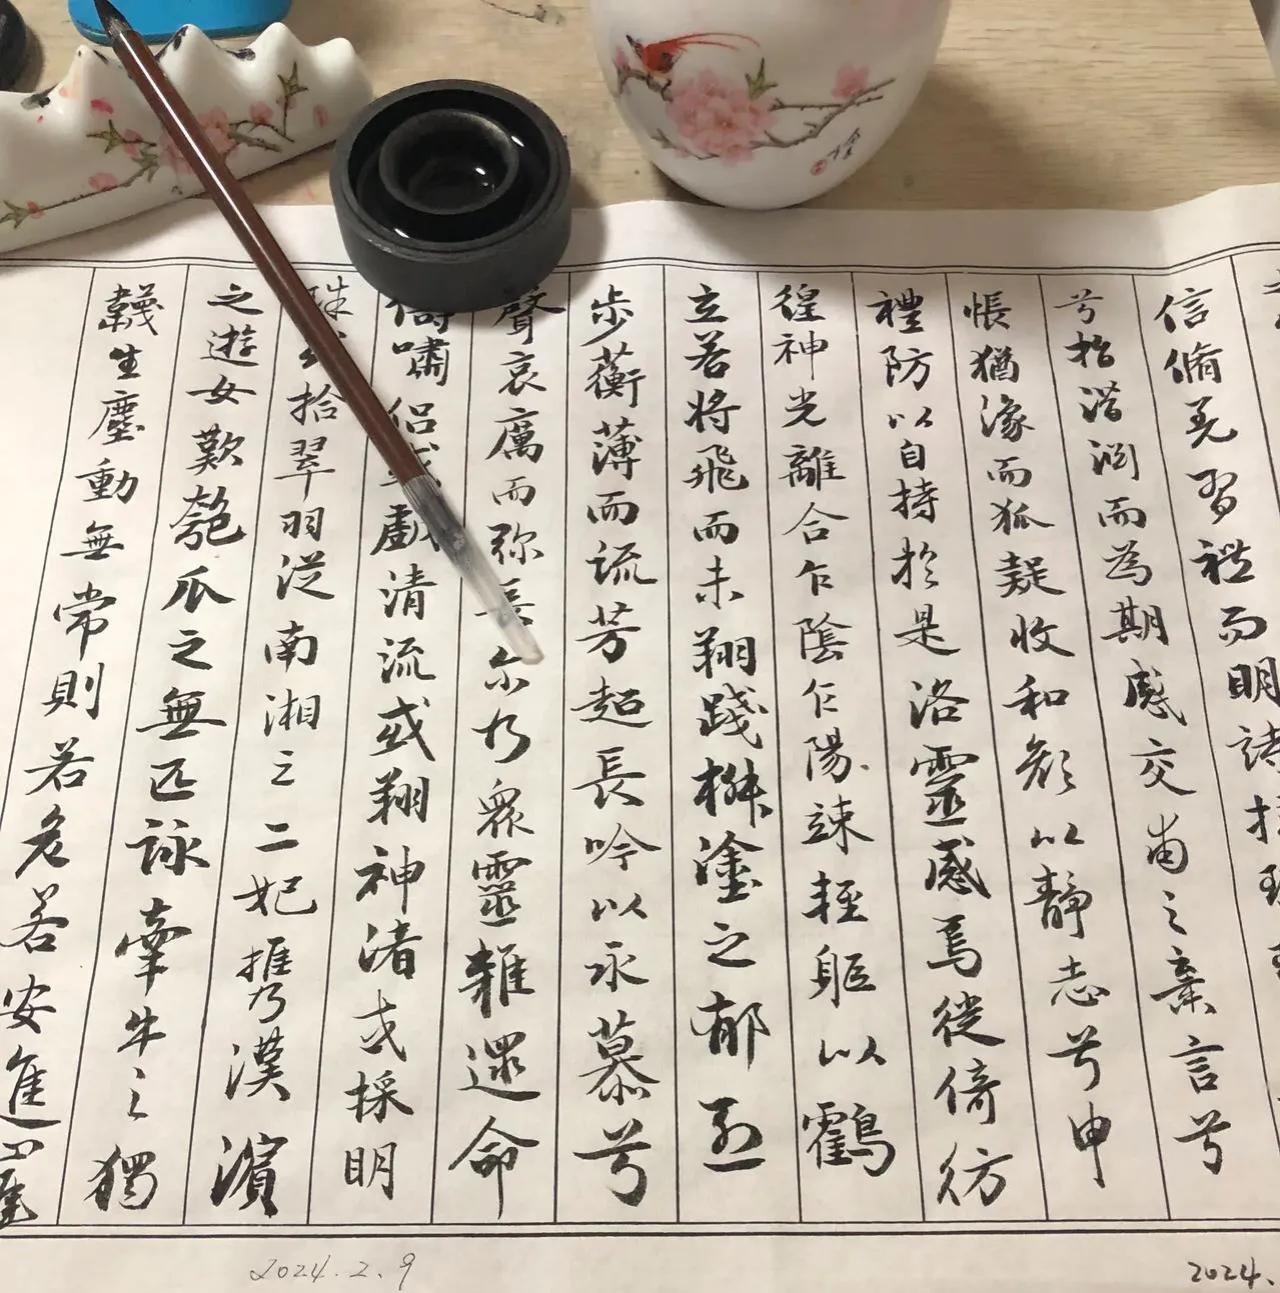 信脩羌習禮而明詩
兮指潛淵而為期感交甫之棄言兮
悵猶豫而狐疑收和顏以靜志兮申
禮防以自持於是洛靈感焉徙倚彷
徨神光離合乍陰乍陽竦輕軀以鶴
立若將飛而未翔踐椒塗之郁烈
步蘅薄而流芳超長吟以永慕兮
聲哀厲而弥長尔乃眾靈雜遝命
儔嘯侶或戲清流或翔神渚或採明
珠或拾翠羽從南湘之二妃攜漢濱
之遊女歎匏瓜之無匹詠牽牛之獨
韈生塵動無常則若危若安進止難
2024.2.9
2024.